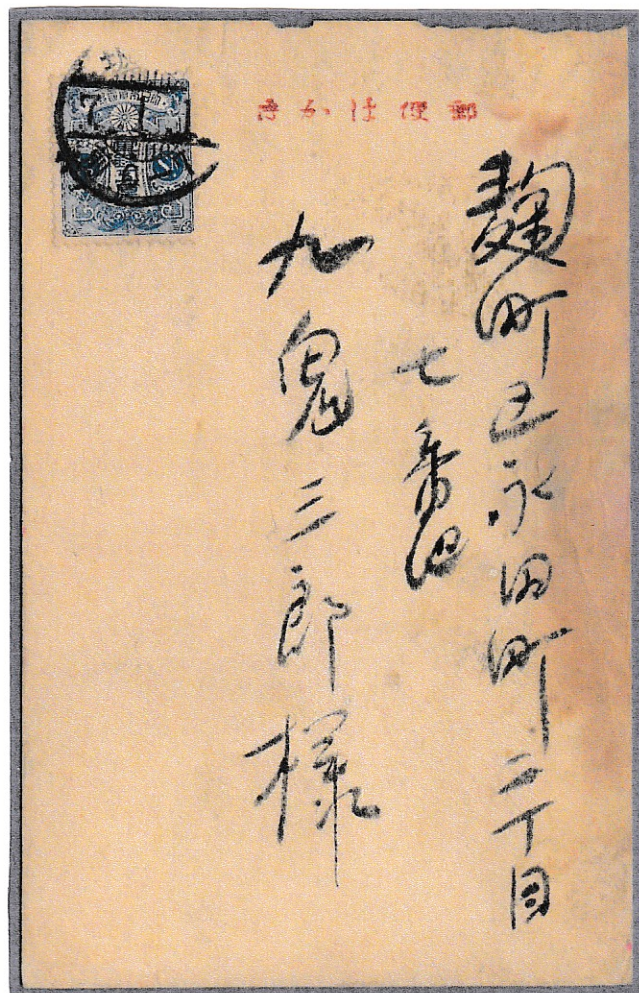 郵便はかき
麹町区永田町二丁目
七番地
九鬼三郎様